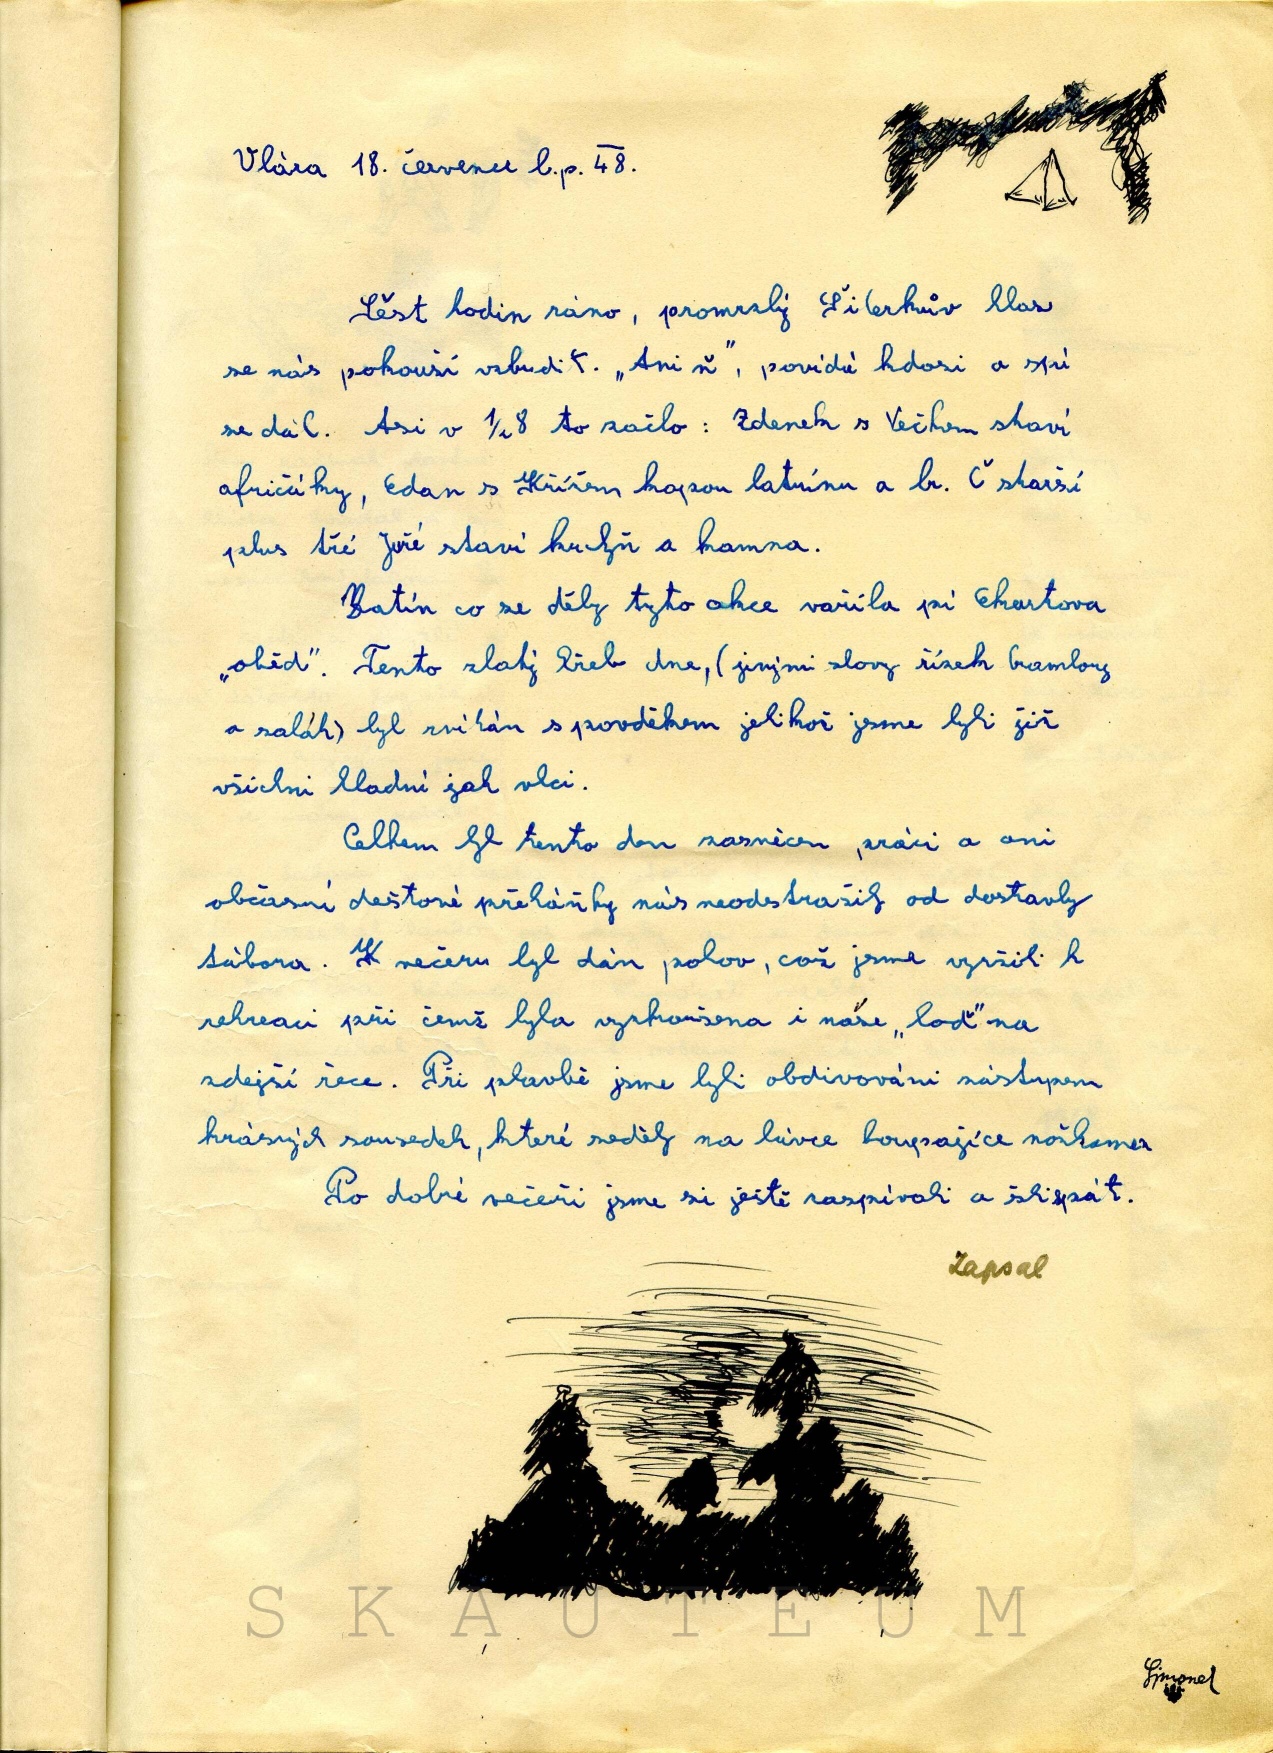 Vlára 18. července l.p. 48.
Šest hodin ráno, promrzlý Šiberkův hlas
se nás pokouší vzbudit. „Ani ň", povídá kdosi a spí
se dál. Asi v 1/2 8 to začlo: Zdenek s Večkem staví
afričáky, Edan s Křížem kopou latrínu a br. Č starší
plus tré Jiří staví kuchyň a kamna.
Zatím co se děly tyto akce vařila pí Ekartova
„oběd". Tento zlatý hřeb dne, (jinými slovy řízek brambory
a salát) byl zvítán s povděkem jelikož jsme byli již
všichni hladní jak vlci.
Celkem byl tento den zasvěcen práci a ani
občasné deštové přeháňky nás neodstrašily od dostavby
tábora. K večeru byl dán pohov, což jsme využili k
rekreaci při čemž byla vyzkoušena i náše „lod" na
zdejší řece. Při plavbě jsme byli obdivováni zástupem
krásných sousedek, které seděly na lávce koupajíce nožkama
Po dobré večeři jsme si ještě zaspívali a šli spát.
Zapsal
SKAUTEUM